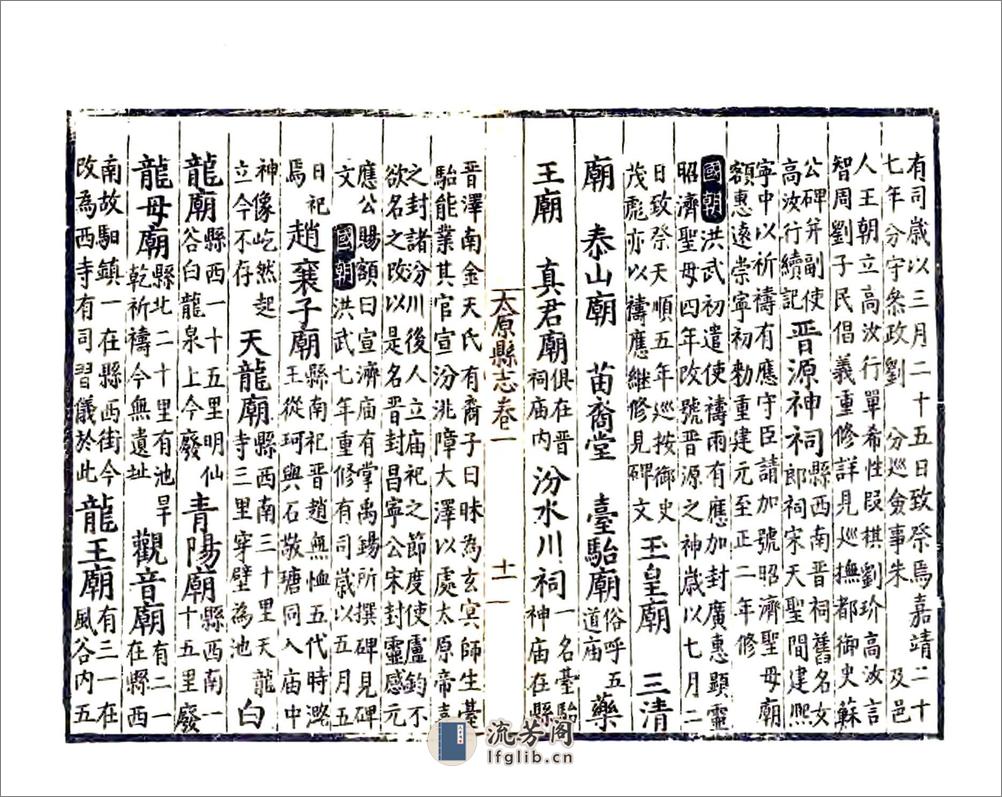 有司歳以三月二十五日致祭焉嘉靖二十
七年分守叅政劉　分巡僉事朱　及邑
人王朝立高汝行單希性段棋劉玠高汝言
智周劉子民倡義重修詳見巡撫都御史蘇
公碑并副使高汝行續記　晉源神祠　縣西南晋祠舊名女郎祠宋天聖間建熈
寧中以祈禱有應守臣請加號昭濟聖母廟
額惠遠崇寧初勑重建元至正二年修
國朝洪武初遣使禱雨有應加封廣惠顯靈
昭濟聖母四年改號晋源之神歳以七月二
日致祭天順五年巡按御史茂彪亦以禱應継修見碑文　玉皇廟　三清
廟　泰山廟　苗裔堂　臺駘廟　俗呼五道庙　藥
王廟　真君廟　俱在晋祠庙内　汾水川祠　一名臺駘神庙在縣
太原縣志卷一　十一
晋澤南金天氏有裔子曰昧為玄冥師生臺
駘能業其官宣汾洮障大澤以處太原帝嘉
之封諸汾川後人立庙祀之節度使盧鈞不
欲名之改以是名晋封昌寧公宋封靈感元
應公賜額曰宣濟庙有掌禹錫所撰碑見碑
文　國朝洪武七年重修有司歳以五月五
日祀焉　趙襄子廟　縣南祀晋趙無恤五代時潞王從珂與石敬瑭同入庙中
神像屹然起立今不存　天龍廟　縣西南三十里天龍寺三里穿壁為池　白
龍廟　縣西一十五里明仙谷白龍泉上今廢　青陽廟　縣西南一十五里廢
龍母廟　縣北二十里有池旱乾祈禱今無遺址　觀音廟　有二一在縣西
南故駟鎮一在縣西街今改為西寺有司習儀於此　龍王廟　有三一在風谷内五
流芳阁
lfglib.cn